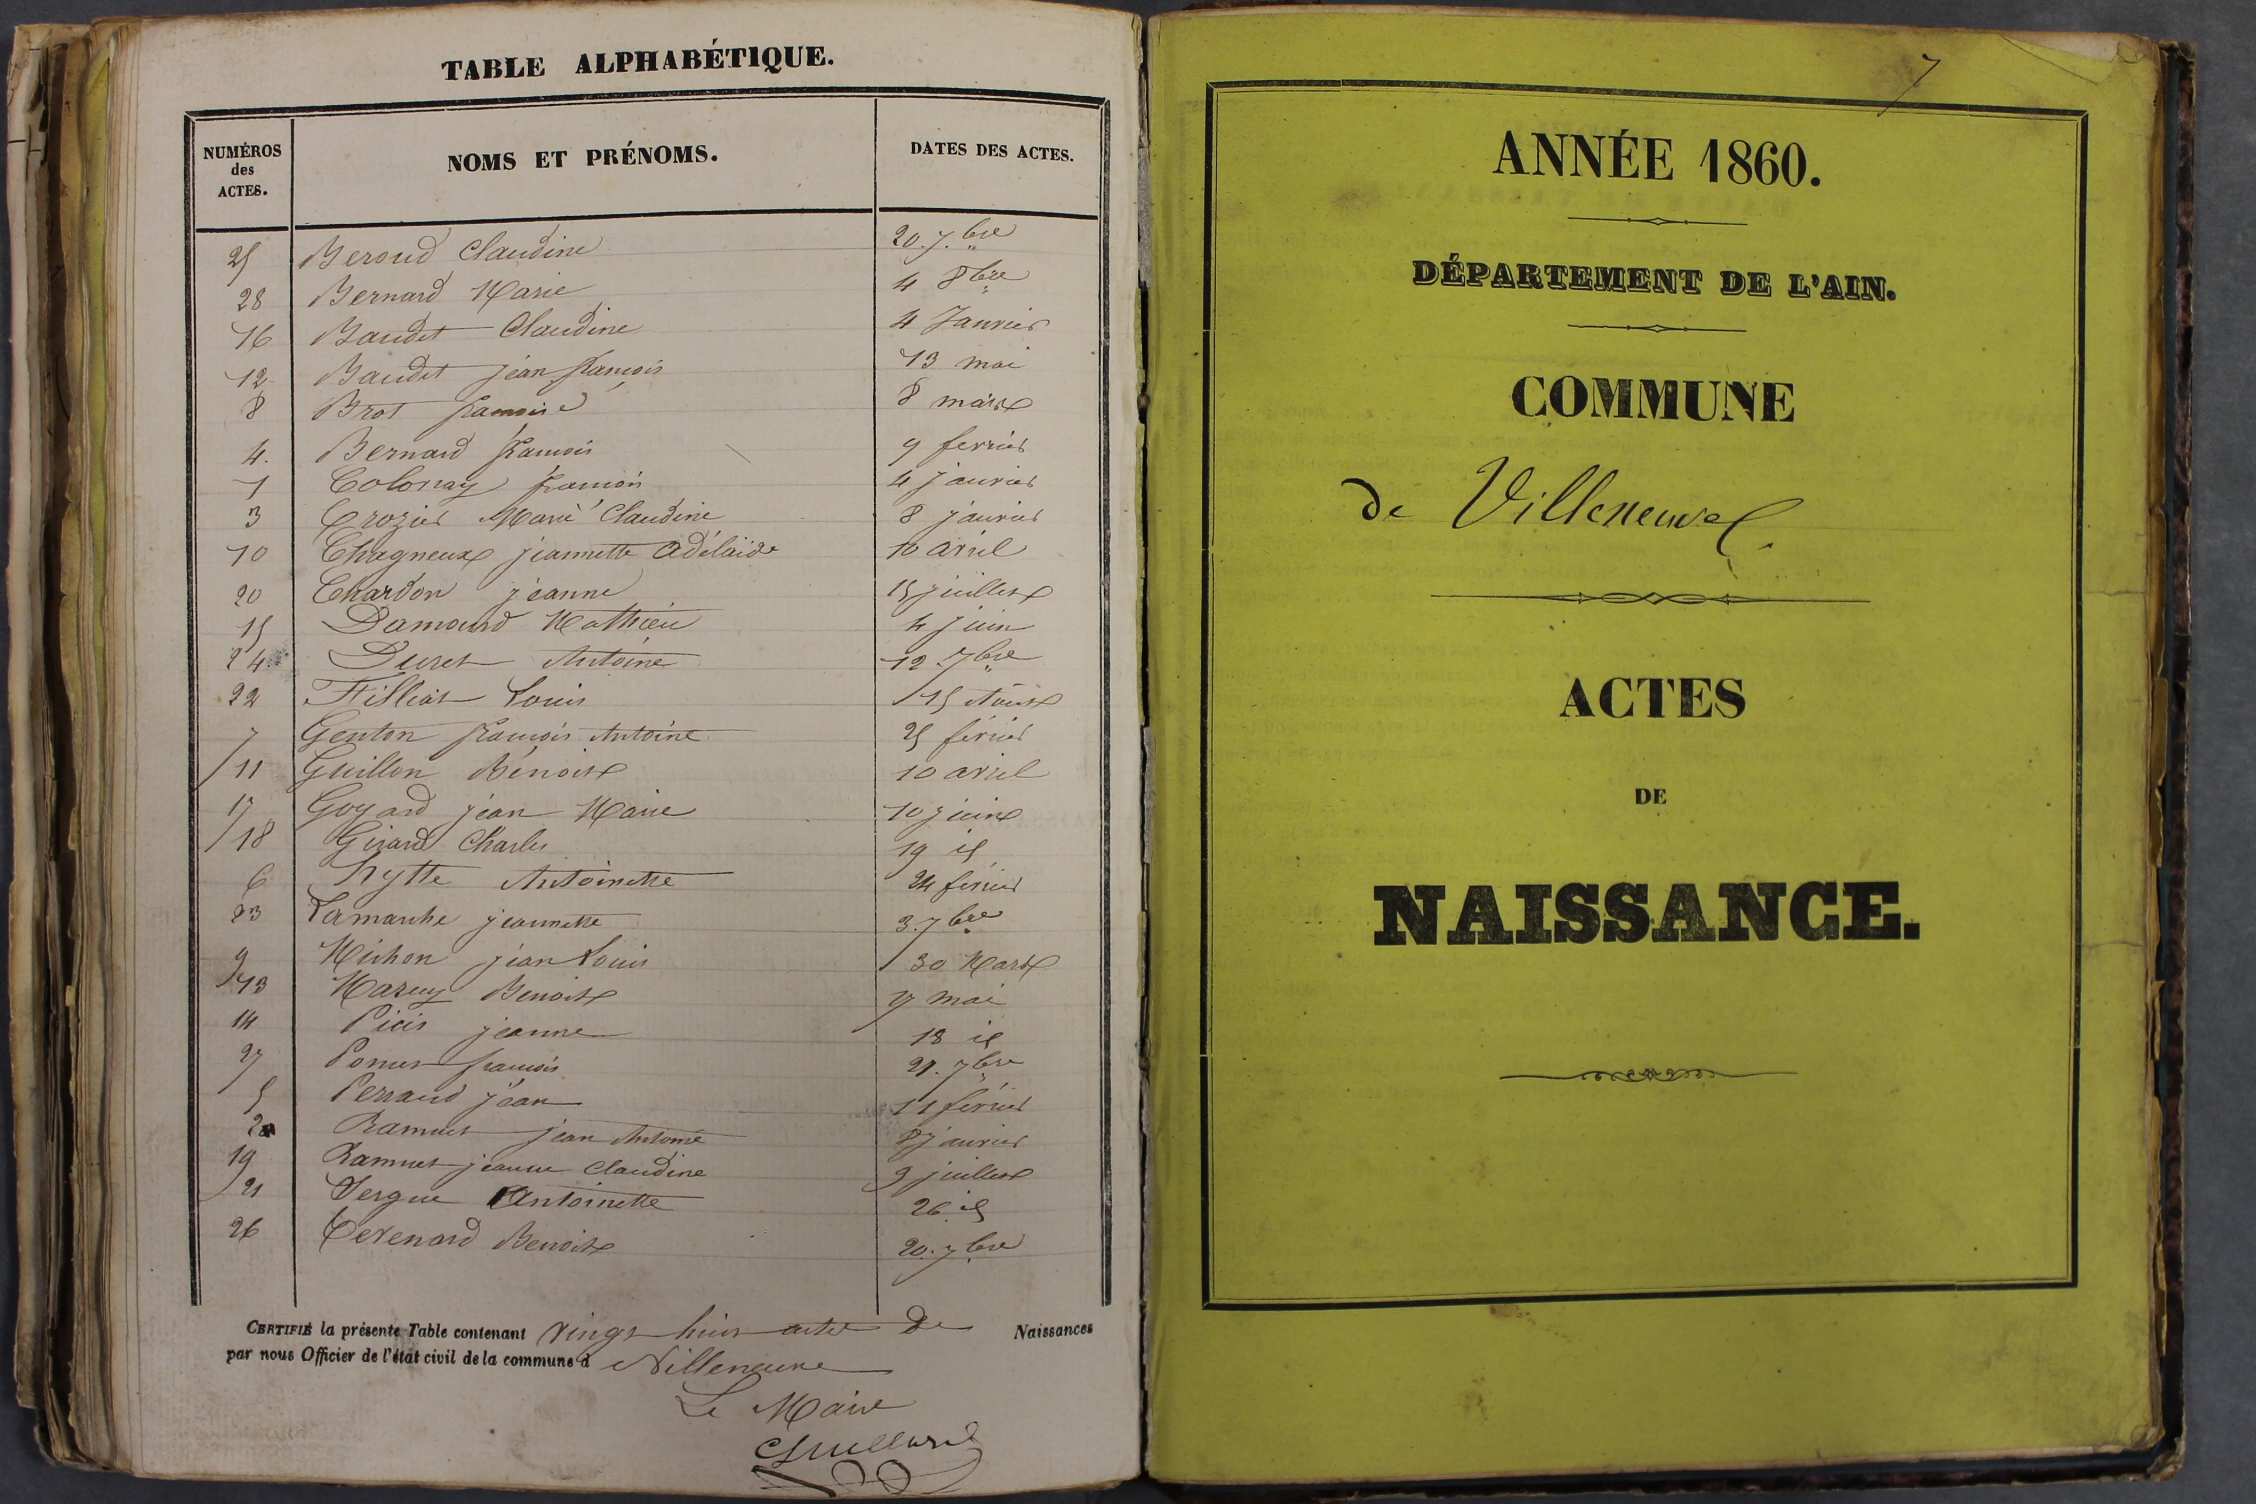 TABLE ALPHABÉTIQUE.
NUMÉROS des ACTES. NOMS ET PRÉNOMS. DATES DES ACTES.
25 Beroud Claudine 20. 7.bre
28 Bernard Marie 4 8bre
16 Baudet Claudine 4 Janvier
12 Baudet jean françois 13 mai
8 Brot 8 mars
4. Bernard françois 9 fevrier
1 Colonay françois 4 janvier
3 Crozier Marie Claudine 8 janvier
10 Chagneux jeannette Adélaïde 10 avril
20 Chardon jeanne 15 juillet
15 Damound Mathieu 4 juin
24 Duret Antoine 12 7bre
22 Filliat Louis 15 Aout
7 Genton françois Antoine 25 février
11 Guillon Bénoit 10 avril
17 Goyard jean Marie 10 juin
18 Girard Charles 19 id
6 Antoinette 24 février
23 Lamarche jeannette 3. 7bre
9 Michon jean Louis 30 Mars
13 Benoit 9 mai
14 jeanne 18 id
27 françois 21. 7bre
5 Perraud jean 11 février
2 Ramuet jean Antoine 8 janvier
19 Ramuet jeanne Claudine 9 juillet
21 Vergue Antoinette 26 id
26 Tevenard Benoit 20. 7bre
CERTIFIÉ la présente Table contenant vingt huit actes de Naissances
par nous Officier de l'état civil de la commune d Villeneuve
Le Maire
7
ANNÉE 1860.
DÉPARTEMENT DE L'AIN.
COMMUNE
de Villeneuve
ACTES
DE
NAISSANCE.